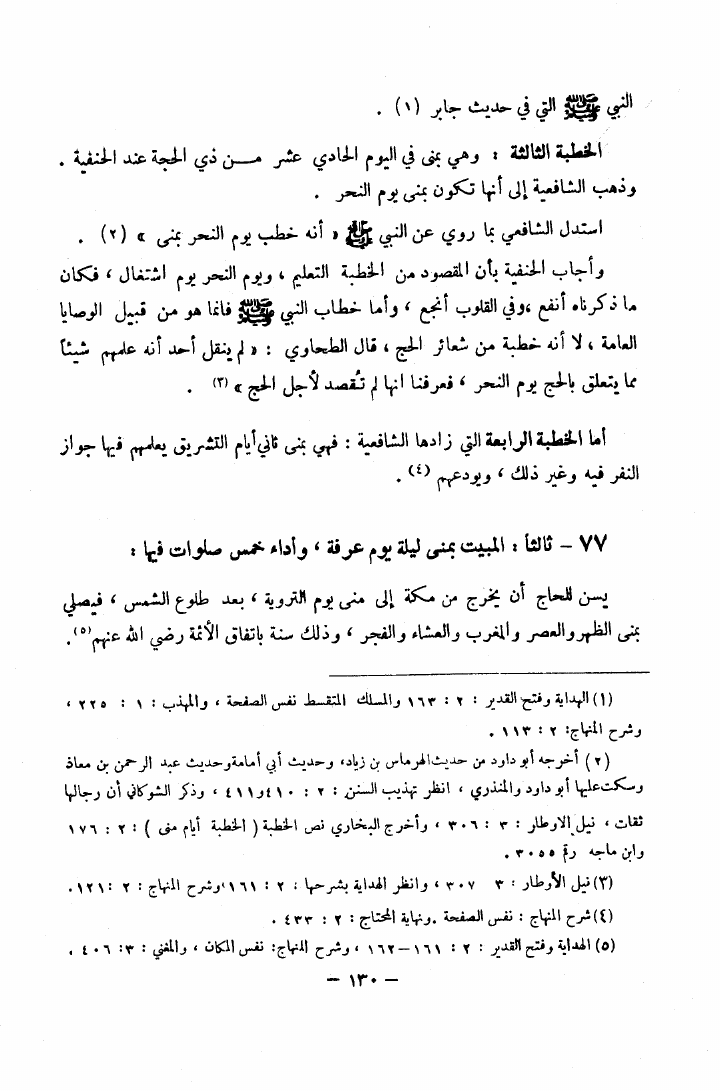 النبي ﷺ التي في حديث جابر (١) .
الخطبة الثالثة : وهي بمنى في اليوم الحادي عشر مـــن ذي الحجة عند الحنفية .
وذهب الشافعية إلى أنها تكون بمنى يوم النحر .
استدل الشافعي بما روي عن النبي ﷺ « أنه خطب يوم النحر بمنى » (٢) .
وأجاب الحنفية بأن المقصود من الخطبة التعليم ، ويوم النحر يوم اشتغال ، فكان
ما ذكرناه أنفع ،وفي القلوب أنجع ، وأما خطاب النبي ﷺ فانما هو من قبيل الوصايا
العامة ، لا أنه خطبة من شعائر الحج ، قال الطحاوي : « لم ينقل أحد أنه علمهم شيئاً
مما يتعلق بالحج يوم النحر ، فعرفنا انها لم تُقصد لأجل الحج » (٣) .
أما الخطبة الرابعة التي زادها الشافعية : فهي بمنى ثاني أيام التشريق يعلمهم فيها جواز
النفر فيه وغير ذلك ، ويودعهم (٤) .
٧٧ – ثالثاً : المبيت بمنى ليلة يوم عرفة ، وأداء خمس صلوات فيها :
يسن للحاج أن يخرج من مكة إلى منى يوم التروية ، بعد طلوع الشمس ، فيصلي
بمنى الظهر والعصر والمغرب والعشاء والفجر ، وذلك سنة باتفاق الأئمة رضي الله عنهم(٥).
(١) الهداية وفتح القدير : ٢ : ١٦٣ والمسلك المتقسط نفس الصفحة ، والمهذب : ١ : ٢٢٥ ،
وشرح المنهاج: ٢ : ١١٣ .
(٢) أخرجه أبو داود من حديث الهرماس بن زياد، وحديث أبي أمامة وحديث عبد الرحمن بن معاذ
وسكت عليها أبو داود والمنذري ، انظر تهذيب السنن : ٢ : ٤١٠ و٤١١ ، وذكر الشوكاني أن رجالها
ثقات ، نيل الاوطار : ٣ : ٣٠٦ ، وأخرج البخاري نص الخطبة ( الخطبة أيام منى ) : ٢ : ١٧٦
وابن ماجه رقم ٣٠٥٥ .
(٣) نيل الأوطار : ٣ ٣٠٧ ، وانظر الهداية بشرحها : ٢ : ١٦١ ،وشرح المنهاج : ٢ :١٢١.
(٤) شرح المنهاج : نفس الصفحة .ونهاية المحتاج : ٢ : ٤٣٣ .
(٥) الهداية وفتح القدير : ٢ : ١٦١–١٦٢ ، وشرح المنهاج: نفس المكان ، والمغني : ٣: ٤٠٦ .
– ١٣٠ –